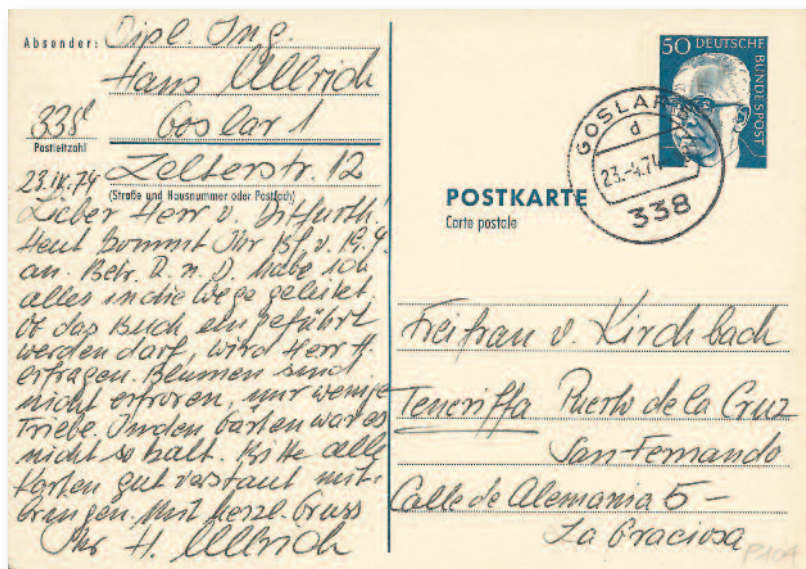 Absender: Dipl. Ing.
Hans Ullrich
338 Goslar 1
Postleitzahl
Zelterstr. 12
(Straße und Hausnummer oder Postfach)
23.IV.74
Lieber Herr v. Ditfurth!
Heut kommt Ihr Bf. v. 19.4.
an. Betr. D. n. D. habe ich
alles in die Wege geleitet.
Ob das Buch eingeführt
werden darf, wird Herr H.
erfragen. Blumen sind
nicht erfroren, nur wenige
Triebe. In den Gärten war es
nicht so kalt. Bitte alle
Karten gut verstaut mit-
bringen. Mit herzl. Gruss
Ihr H. Ullrich
50 DEUTSCHE
BUNDESPOST
GOSLAR
d
23.-4.74
338
POSTKARTE
Carte postale
Freifrau v. Kirchbach
Teneriffa Puerto de la Cruz
San Fernando
Calle de Alemania 5 –
La Graciosa
P104